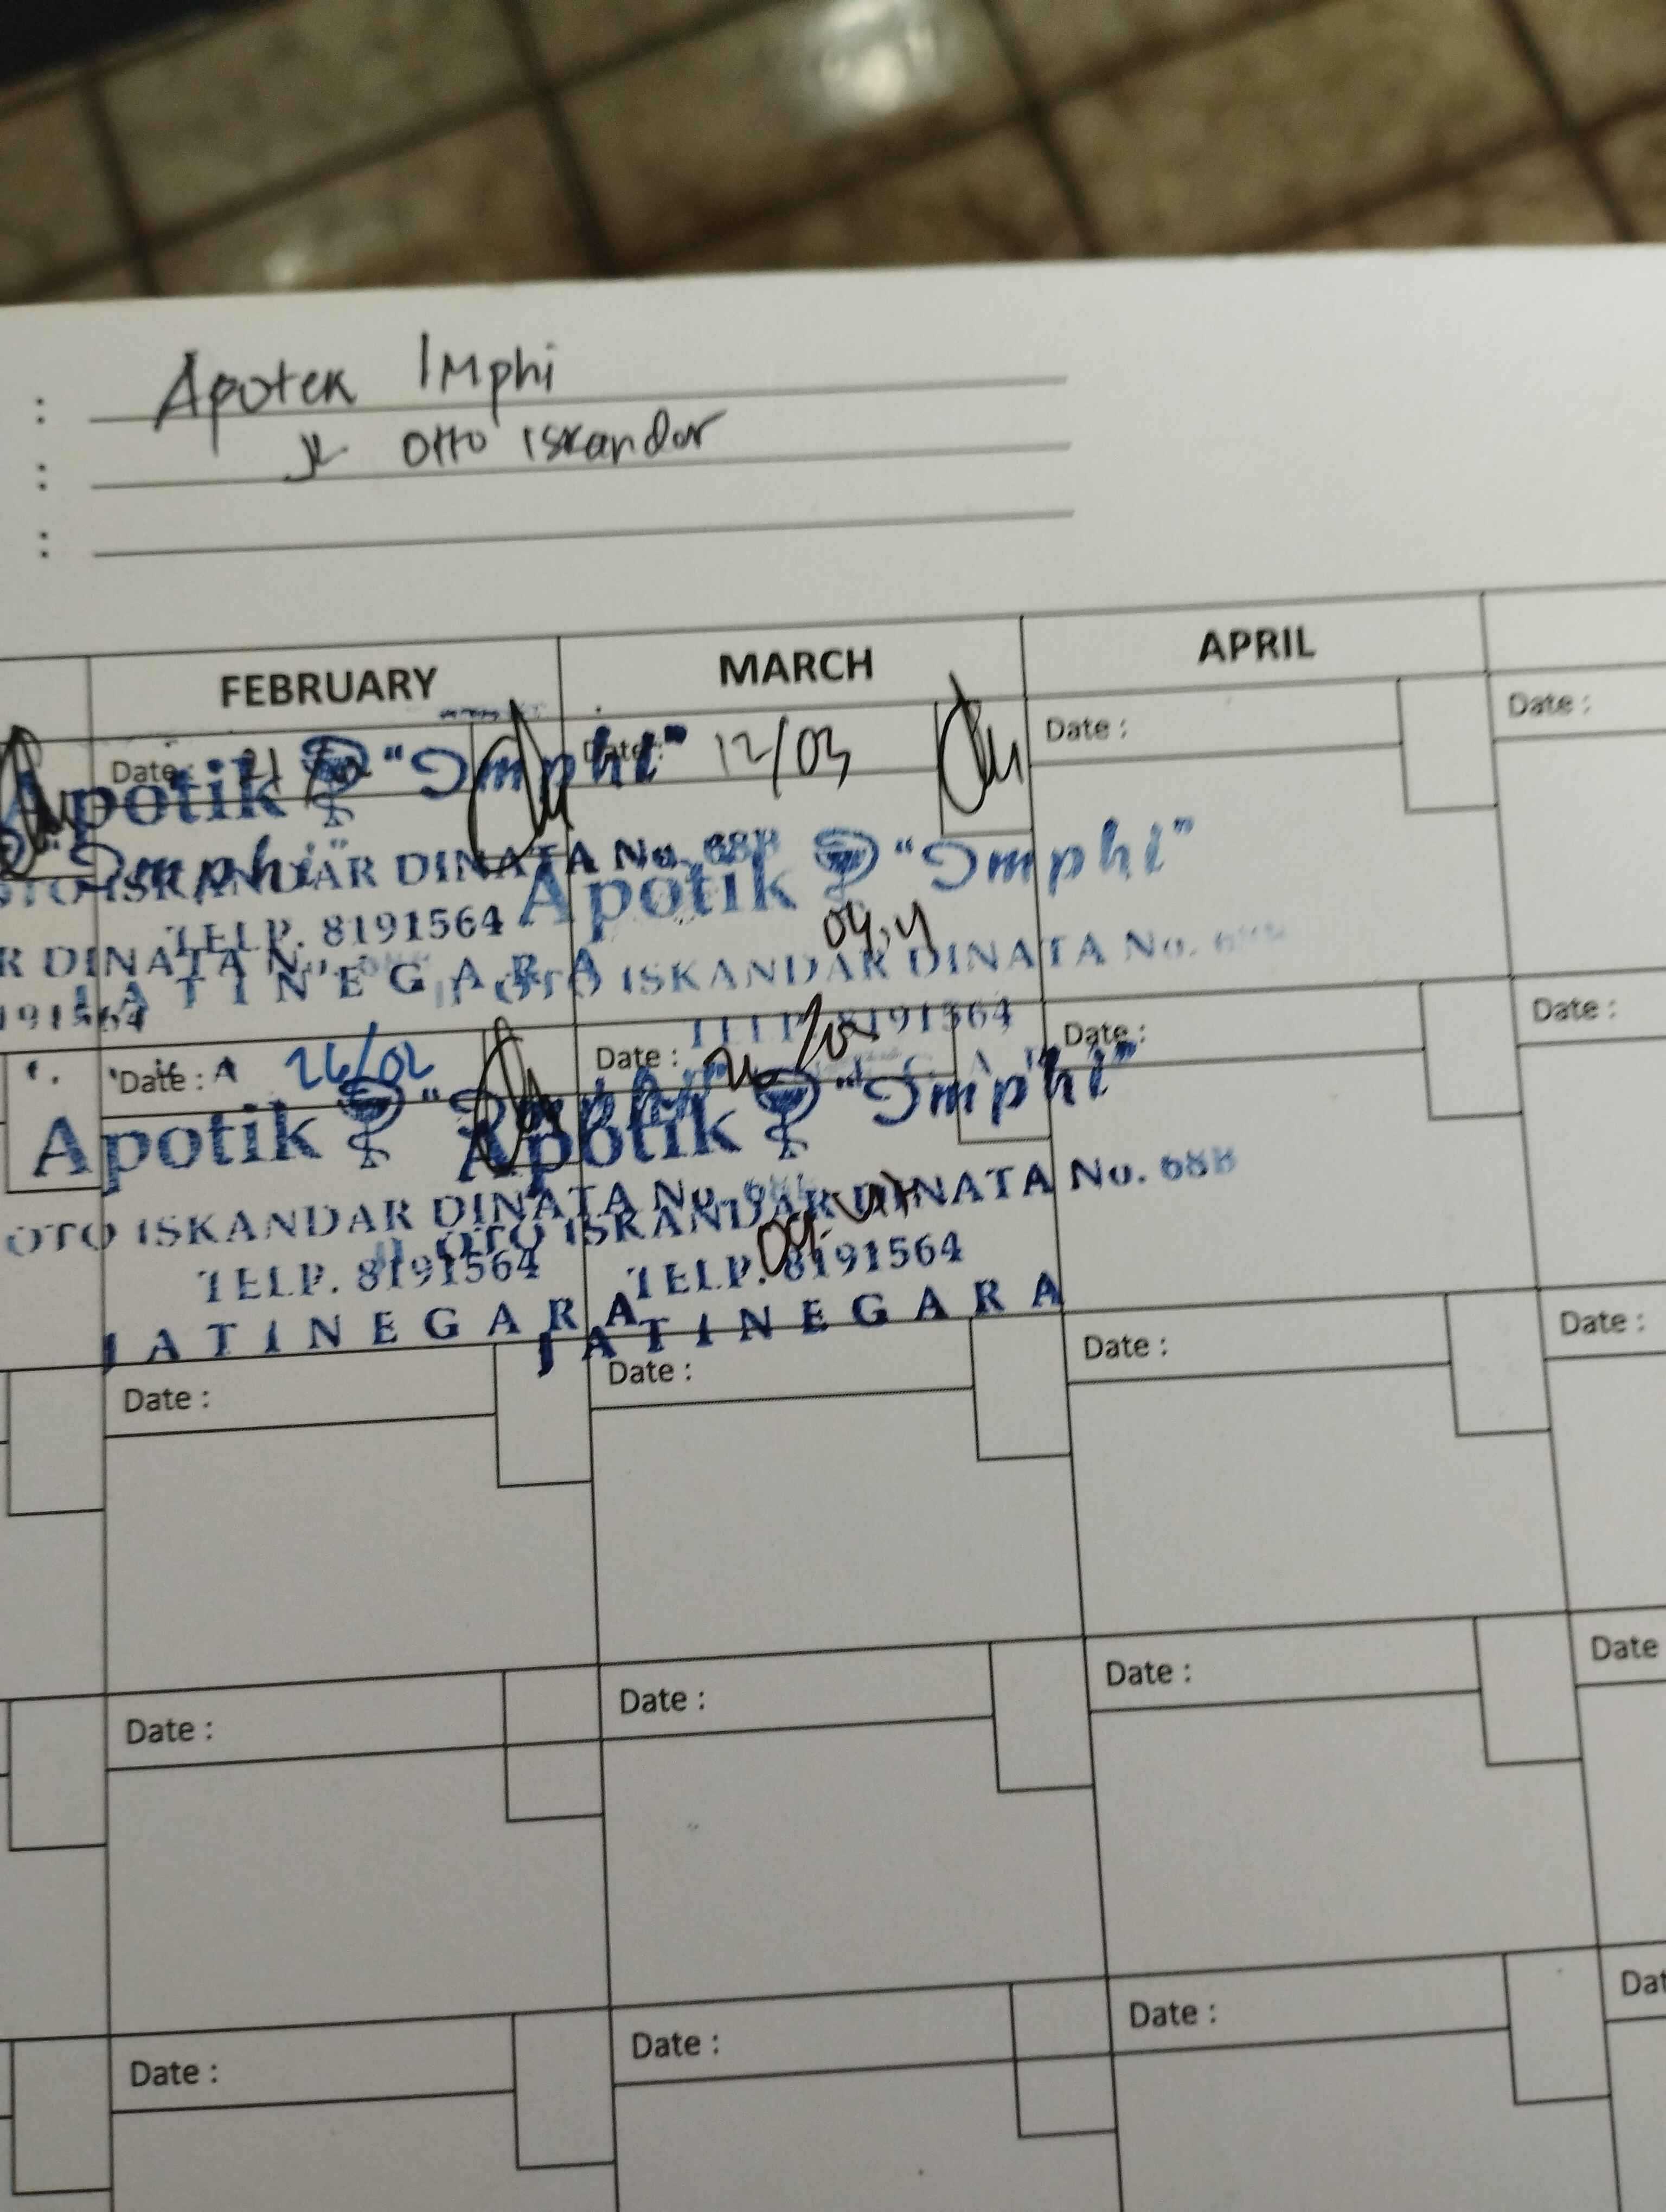 : Apotek Imphi
: Jl Otto Iskandar
:
FEBRUARY MARCH APRIL
Date : Date : 12/03 Date : Date :
Apotik "Imphi"
OTO ISKANDAR DINATA No. 68B
TELP. 8191564
JATINEGARA
"Imphi"
R DINATA No.
191564
Apotik "Imphi"
Jl. OTO ISKANDAR DINATA No. 68B
TELP. 8191564
Date : 26/02 Date : Date : Date :
Apotik "Imphi"
OTO ISKANDAR DINATA No.
TELP. 8191564
JATINEGARA
Apotik "Imphi"
Jl. OTO ISKANDAR DINATA No. 68B
TELP. 8191564
JATINEGARA
Date : Date : Date : Date :
Date : Date : Date : Date
Date : Date : Date : Dat